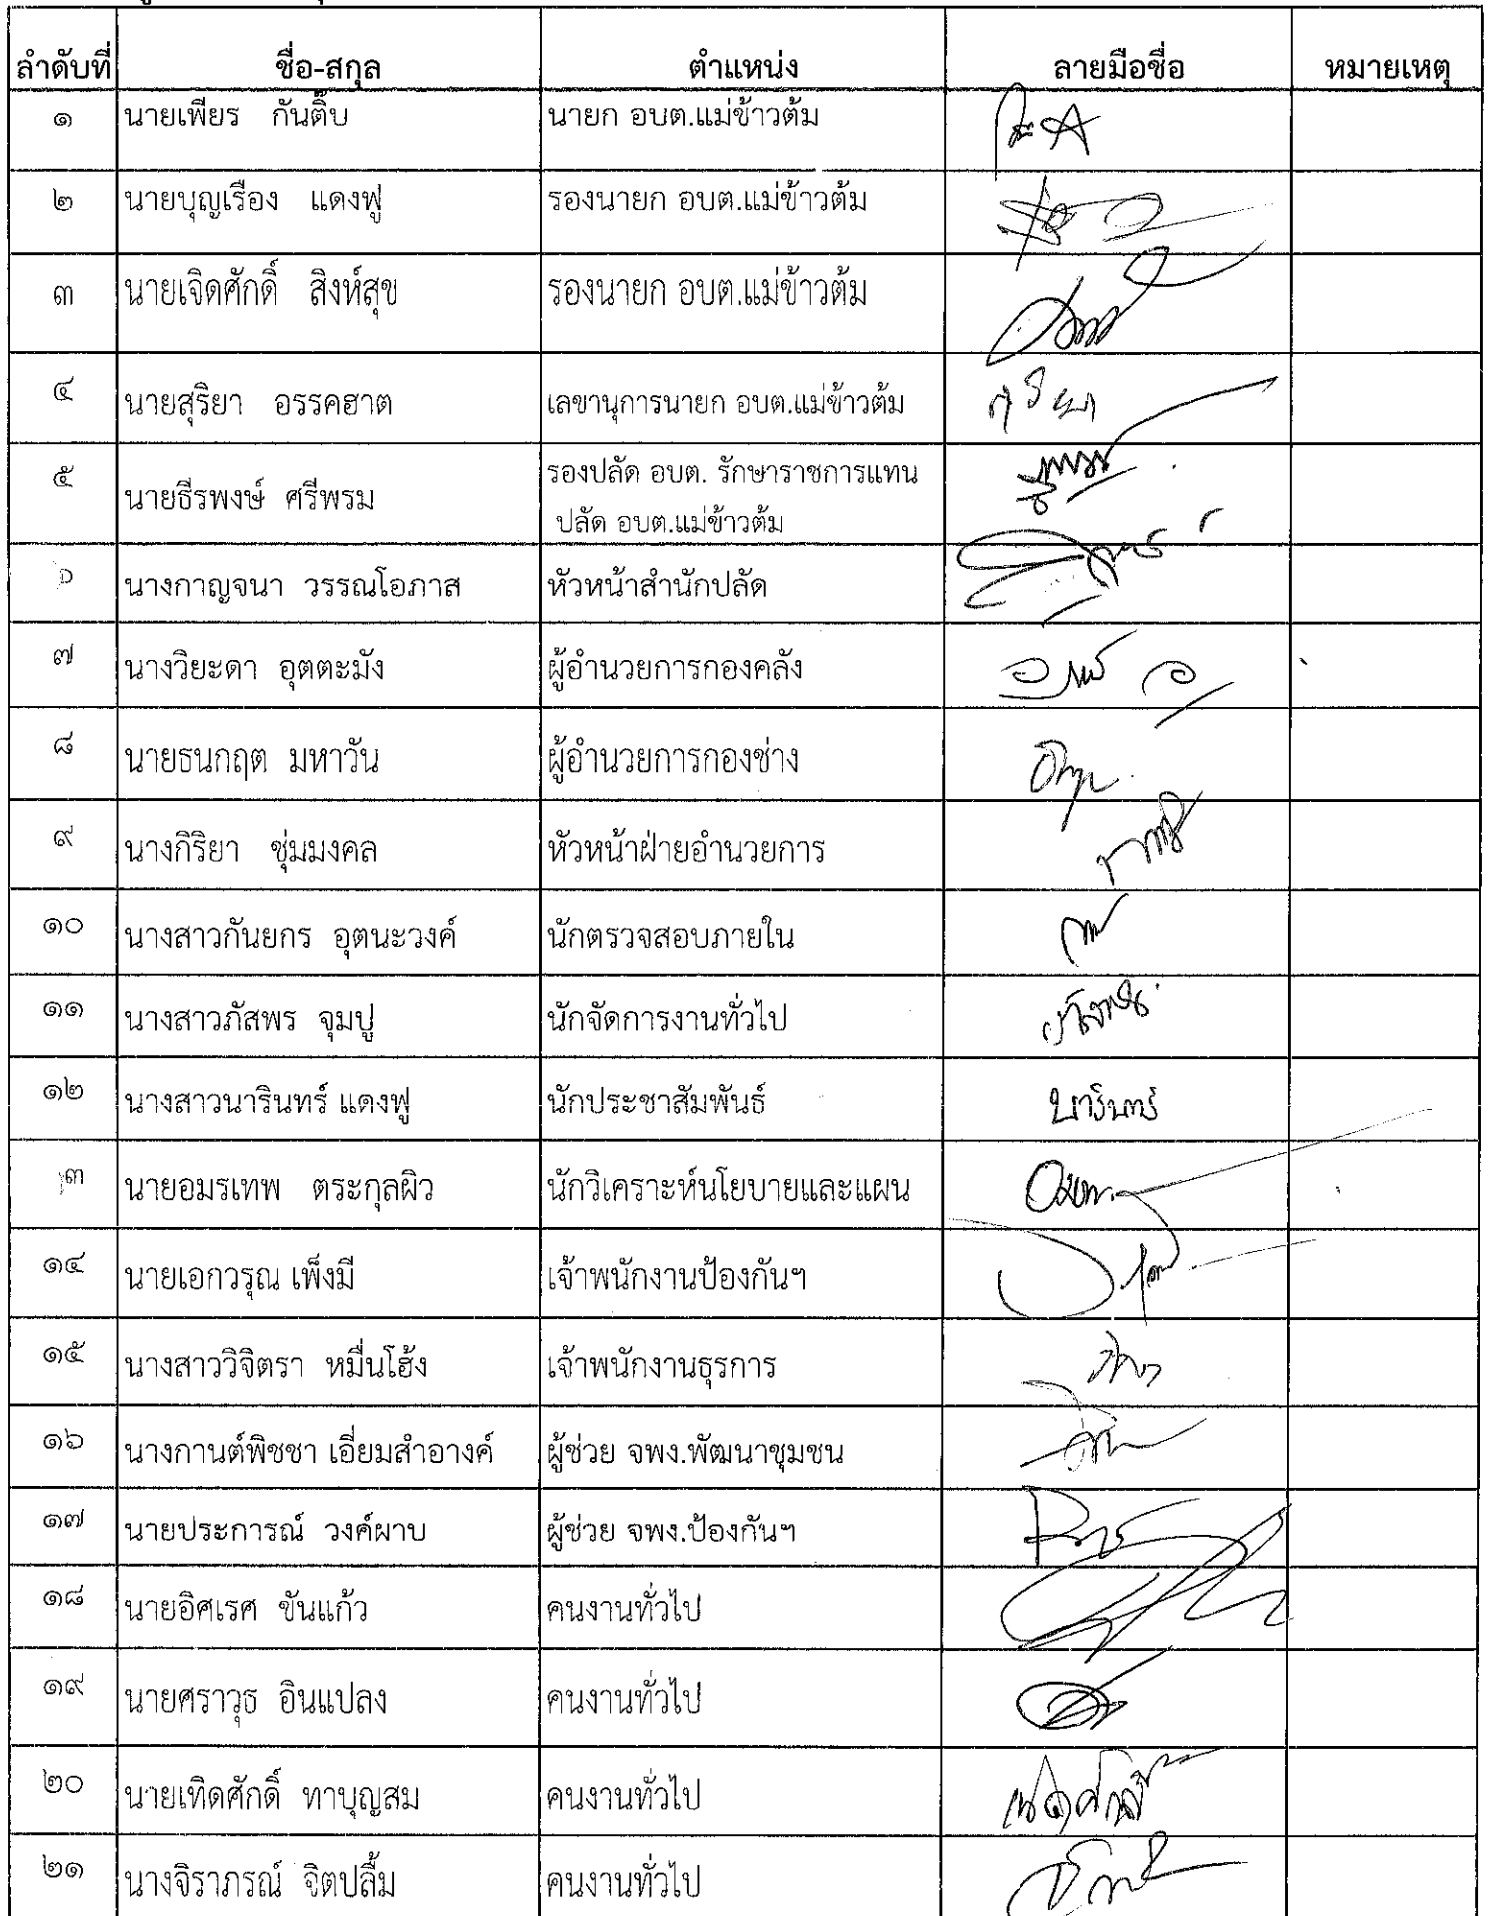 ลำดับที่ ชื่อ-สกุล ตำแหน่ง ลายมือชื่อ หมายเหตุ
๑ นายเพียร กันติ๊บ นายก อบต.แม่ข้าวต้ม
๒ นายบุญเรือง แดงฟู รองนายก อบต.แม่ข้าวต้ม
๓ นายเจิดศักดิ์ สิงห์สุข รองนายก อบต.แม่ข้าวต้ม
๔ นายสุริยา อรรคฮาต เลขานุการนายก อบต.แม่ข้าวต้ม สุริยา
๕ นายธีรพงษ์ ศรีพรม รองปลัด อบต. รักษาราชการแทน
ปลัด อบต.แม่ข้าวต้ม
นางกาญจนา วรรณโอภาส หัวหน้าสำนักปลัด
๗ นางวิยะดา อุตตะมัง ผู้อำนวยการกองคลัง
๘ นายธนกฤต มหาวัน ผู้อำนวยการกองช่าง
๙ นางกิริยา ชุ่มมงคล หัวหน้าฝ่ายอำนวยการ
๑๐ นางสาวกันยกร อุตนะวงค์ นักตรวจสอบภายใน
๑๑ นางสาวภัสพร จุมปู นักจัดการงานทั่วไป
๑๒ นางสาวนารินทร์ แดงฟู นักประชาสัมพันธ์ นารินทร์
๑๓ นายอมรเทพ ตระกูลผิว นักวิเคราะห์นโยบายและแผน
๑๔ นายเอกวรุณ เพ็งมี เจ้าพนักงานป้องกันฯ
๑๕ นางสาววิจิตรา หมื่นโฮ้ง เจ้าพนักงานธุรการ
๑๖ นางกานต์พิชชา เอี่ยมสำอางค์ ผู้ช่วย จพง.พัฒนาชุมชน
๑๗ นายประการณ์ วงค์ผาบ ผู้ช่วย จพง.ป้องกันฯ
๑๘ นายอิศเรศ ขันแก้ว คนงานทั่วไป
๑๙ นายศราวุธ อินแปลง คนงานทั่วไป
๒๐ นายเทิดศักดิ์ ทาบุญสม คนงานทั่วไป เทิดศักดิ์
๒๑ นางจิราภรณ์ จิตปลื้ม คนงานทั่วไป